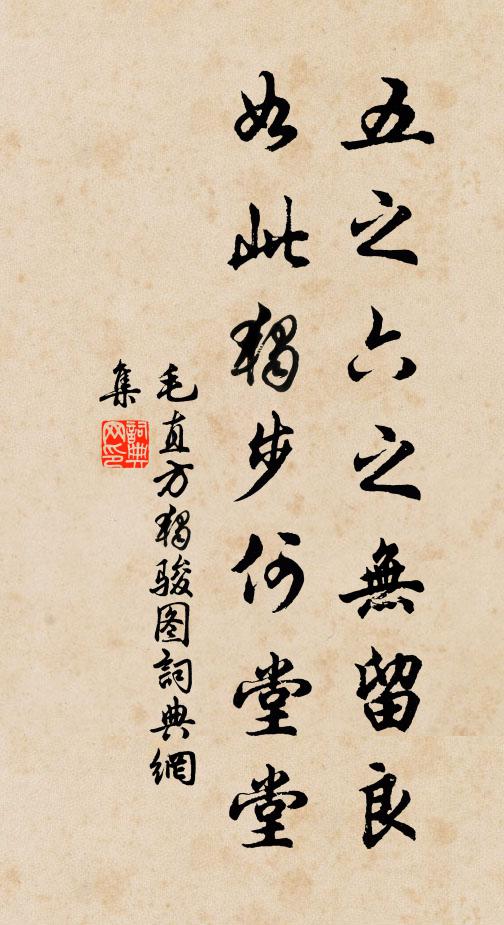 五之六之無留良
如此獨步何堂堂
毛直方獨骏图詞典網
集
詞典
网印